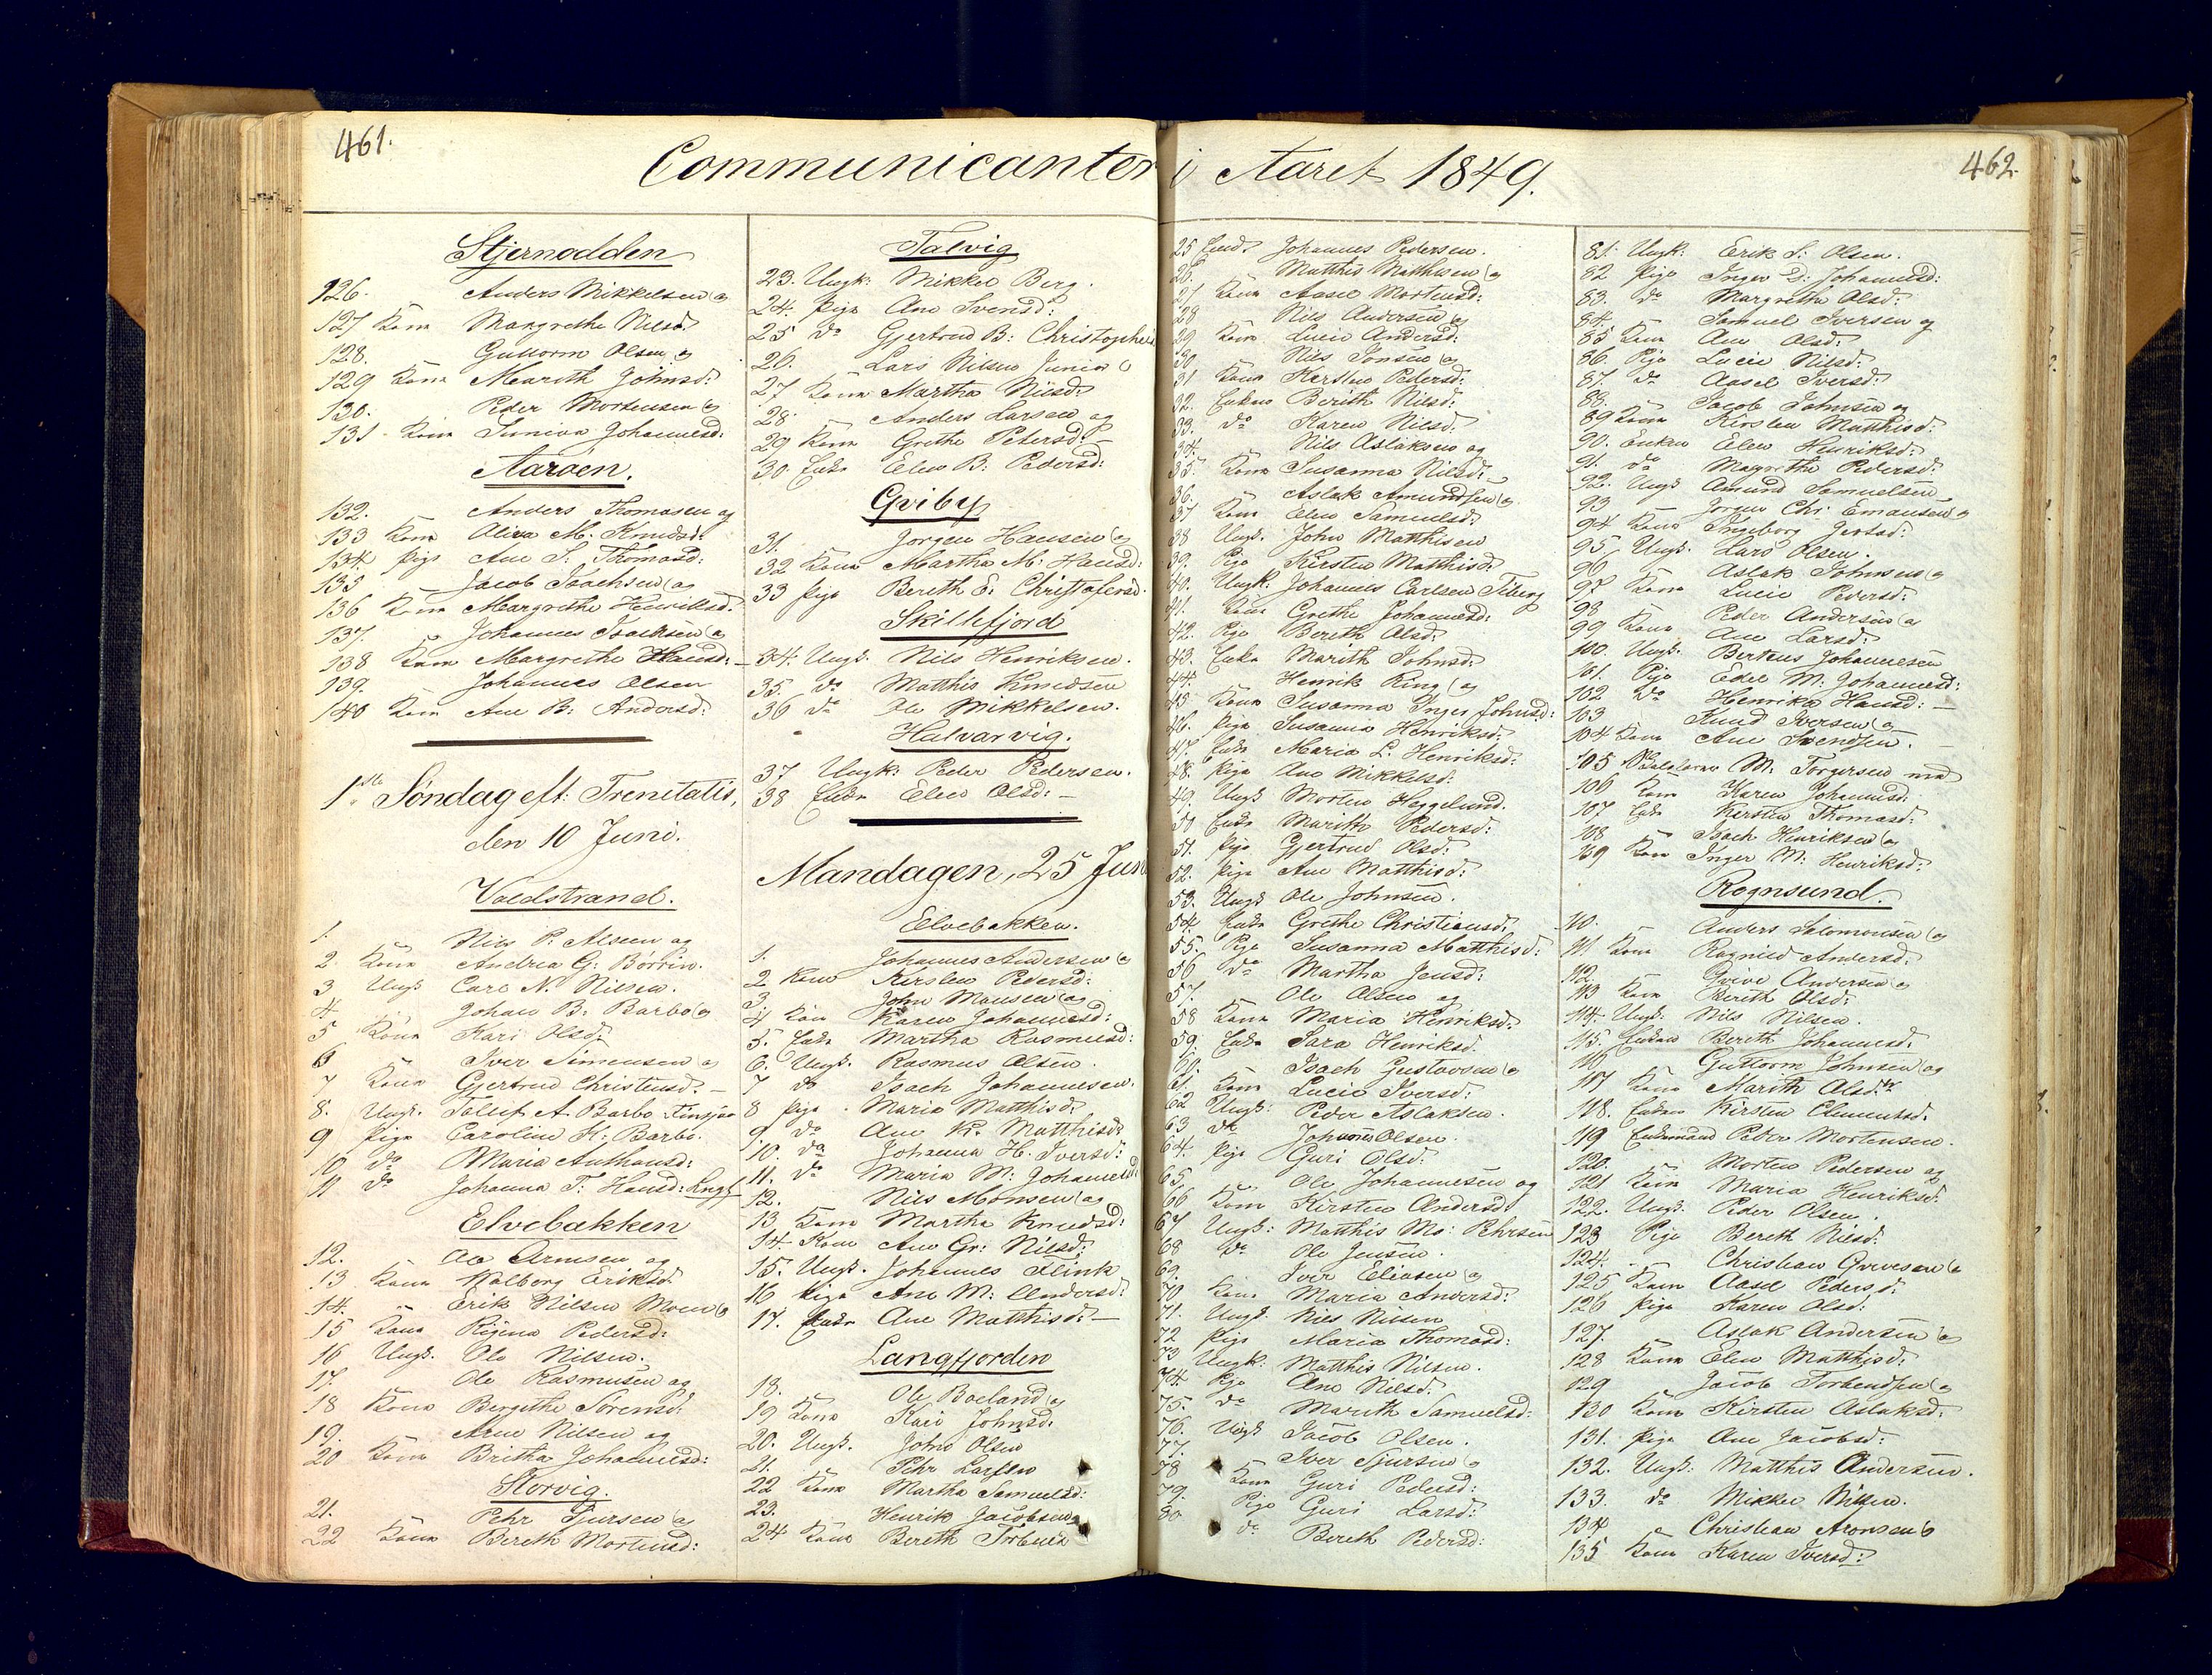 461.
Communicanter i Aaret 1849.
462.
Stjernodden
126. Anders Mikkelsen og
127 Kone Margrethe Nilsd:
128. Guttorm Olsen og
129 Kone Marith Johnsd:
130. Peder Mortensen og
131 Kone Suniva Johannesd:
Aaröen.
132. Anders Thomasen og
133 Kone Aliva M. Knudsd:
134 Pige Ane S. Thomasd:
135 Jacob Isachsen og
136 Kone Margrethe Henriksd:
137. Johannes Isachsen og
138 Kone Margrethe Hansd: –
139. Johannes Olsen
140 Kone Ane B: Andersd:
1ste Söndag eft: Trenitatis,
den 10 Juni.
Qvedstrand.
1. Nils P. Alseen og
2. Kone Andrea G: Börrin.
3 Ungk. Carl N. Nilsen.
4 Johan B: Barbo og
5 Kone Kari Olsd:
6 Iver Simensen og
7 Kone Gjertrud Christensd: –
8. Ungk. Tollef A. Barbo
9 Pige Caroline K: Barbo.
10 do Maria Anthonsd:
11 do Johanna T: Hansd:
Elvebakken
12. Ole Arnesen og
13 Kone Walborg Eriksd:
14. Erik Nilsen Moen og
15 Kone Regina Pedersd:
16 Ungk. Ole Nilsen.
17. Ole Rasmusen og
18 Kone Bergithe Sörensd:
19. Arne Nilsen og
20 Kone Britha Johannesd:
Storvig.
21. Pehr Sjursen og
22 Kone Bereth Mortensd:
Talvig
23. Ungk: Mikkel Berg.
24. Pige Ane Svensd:
25 do Gjertrud B: Christophers
26. Lars Nilsen Junior
27 Kone Martha Nilsd:
28. Anders Larsen og
29 Kone Grethe Pedersd: –
30. Enke Elen B: Pedersd:
Qviby
31. Jörgen Hansen og
32 Kone Martha M: Hansd:
33 Pige Bereth E: Christofersd.
Skillefjord
34. Ungk. Nils Henriksen.
35. do Matthis Knudsen
36 do Ole Mikkelsen.
Halvarvig.
37 Ungk: Peder Pedersen.
38 Enke Elen Olsd: –
Mandagen, 25 Jun
Elvebakken.
1. Johannes Andersen og
2 Kone Kirsten Pedersd:
3. John Monsen og
4 Kone Karen Johannesd:
5. Enke Martha Rasmusd:
6. Ungk. Rasmus Olsen
7 do Isach Johannesen.
8 Pige Maria Matthisd:
9 do Ane K. Matthisd:
10. do Johanna H. Iversd:
11. do Maria M: Johannesd
12. Nils Monsen og
13 Kone Martha Knudsd:
14. Kone Ane Gr: Nilsd:
15. Ungk. Johannes Flink
16 Pige Ane M: Andersd:
17. Enke Ane Matthisd: –
Langfjorden
18. Ole Boeland og
19 Kone Kari Johnsd:
20. Ungk. John Olsen
21. Pehr Larsen
22 Kone Martha Samuelsd:
23. Henrik Jacobsen og
24 Kone Bereth
25 Enkd. Johannes Pedersen.
26. Matthis Mathisen og
27 Kone Aasel Mortensd:
28 Nils Andersen og
29 Kone Lucie Andersd:
30 Nils Jonsen og
31 Kone Kersten Pedersd:
32. Enken Berith Nilsd:
33. do Karen Nilsd:
34. Nils Aslaksen og
35. Kone Susanna Nilsd: –
36. Aslak Amundsen og
37 Kone Elen Samuelsd:
38 Ungk. John Matthisen
39. Pige Kirsten Matthisd:
40. Ungk: Johannes Carlsen Tiberg
41. Kone Grethe Johannesd:
42. Pige Bereth Olsd:
43. Enke Marith Johnsd:
44. Henrik Ring og
45 Kone Susanna Inger Johnsd:
46. Pige Susanna Henriksd:
47. Enke Maria L. Henriksd:
48. Pige Ane Mikkelsd:
49. Ungk Morten Heggelund.
50 Enke Marith Pedersd:
51. Pige Gjertrud Olsd:
52. Pige Ane Matthisd:
53. Ungk Ole Johnsen.
54 Enke Grethe Christiansd:
55. Pige Susanna Matthisd:
56 do Martha Jensd:
57. Ole Olsen og
58 Kone Maria Henriksd:
59. Enke Sara Henriksd.
60. Isach Gustavsen og
61. Kone Lucie Iversd:
62 Ungk: Peder Aslaksen.
63 do Johannes Olsen.
64. Pige Guri Olsd:
65. Ole Johannesen og
66 Kone Kirsten Andersd:
67 Ungk: Matthis Mo: Pehrsen
68 do Ole Jensen.
69. Iver Eliasen og
70 Kone Maria Andersd:
71. Ungk. Nils Nilsen
72 Pige Maria Thomasd:
73 Ungk: Matthis Nilsen.
74. Pige Ane Nilsd:
75. do Mareth Samuelsd:
76. Ungk Jacob Olsen.
77. Iver Sjursen og
78 Kone Guri Pedersd:
79. Pige Guri Larsd:
80 do Bereth Pedersd:
81. Ungk: Erik S. Olsen.
82 Pige Inger D: Johannesd:
83. do Margrethe Olsd:
84. Samuel Iversen og
85 Kone Ane Olsd:
86. Pige Lucie Nilsd:
87. do Aasel Iversd:
88. Jacob Johnsen og
89 Kone Kirsten Matthisd:
90. Enken Elen Henriksd:
91. do Magrethe Pedersd:
92. Ungk Amund Samuelsen
93 Jörgen Chr: Emausen og
94 Kone Ingeborg Jertsd:
95. Ungk. Lars Olsen.
96 Aslak Johnsen og
97 Kone Lucie Pedersd:
98 Peder Andersen og
99 Kone Ane Larsd:
100. Ungk. Berteus Johannesen
101. Pige Edel M. Johannesd:
102 do Henrika Hansd: –
103 Knud Iversen og
104 Kone Ane Svendsen. –
105 M: Torgersen med
106 Kone Karen Johannesd:
107 Enke Kirsten Thomasd:
108 Isach Henriksen og
109 Kone Inger M: Henriksd:
Rognsund.
110. Anders Salomonsen og
111 Kone Ragnild Andersd:
112. Grive Andersen og
113 Kone Bereth Olsd:
114. Ungk: Nils Nilsen.
115. Enken Bereth Johannesd:
116 Guttorm Johnsen og
117 Kone Marith Olsdtr
118. Enken Kirsten Clemensd:
119 Enkemand Peder Mortensen.
120. Morten Pedersen og
121 Kone Maria Henriksd:
122. Ungk: Peder Olsen.
123 Pige Bereth Nilsd:
124. Christian Grevesen og
125 Kone Aasel Pedersd:
126 Pige Karen Olsd:
127. Aslak Andersen og
128 Kone Elen Matthisd:
129 Jacob Torbendsen og
130 Kone Kirsten Aslaksd:
131. Pige Ane Jacobsd:
132. Ungk: Matthis Andersen.
133. do Mikkel Nilsen.
134 Christian Aronsen og
135 Kone Karen Iversd: